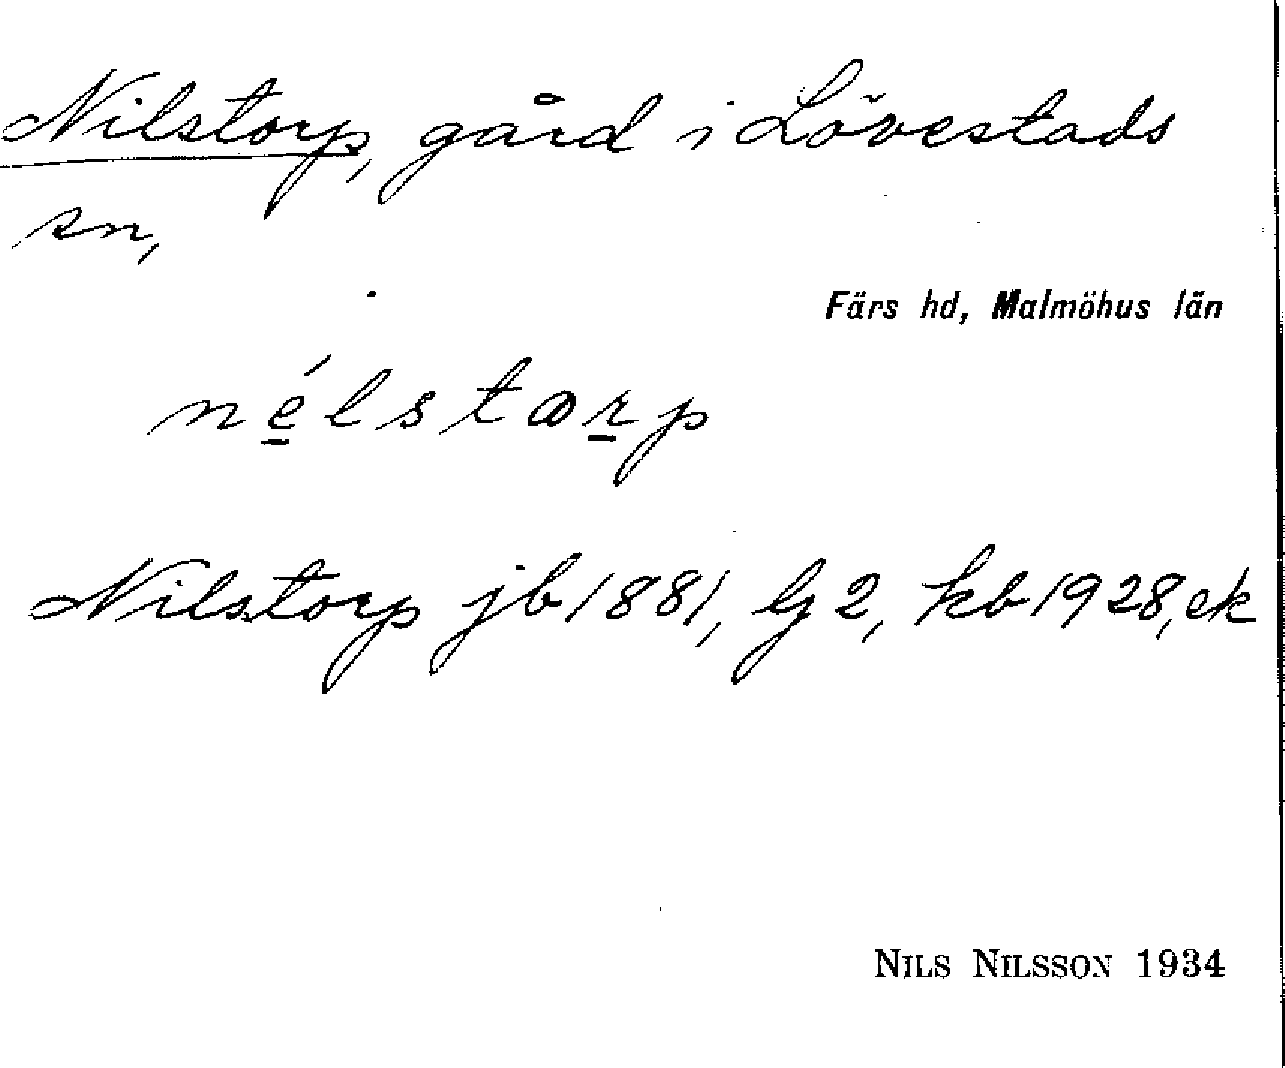 Nilstorp, gård i Lövestads
sn,
Färs hd, Malmöhus län
né̱lstꝏṟp
Nilstorp jb 1881, G 2, kb 1928, ek
NILS NILSSON 1934